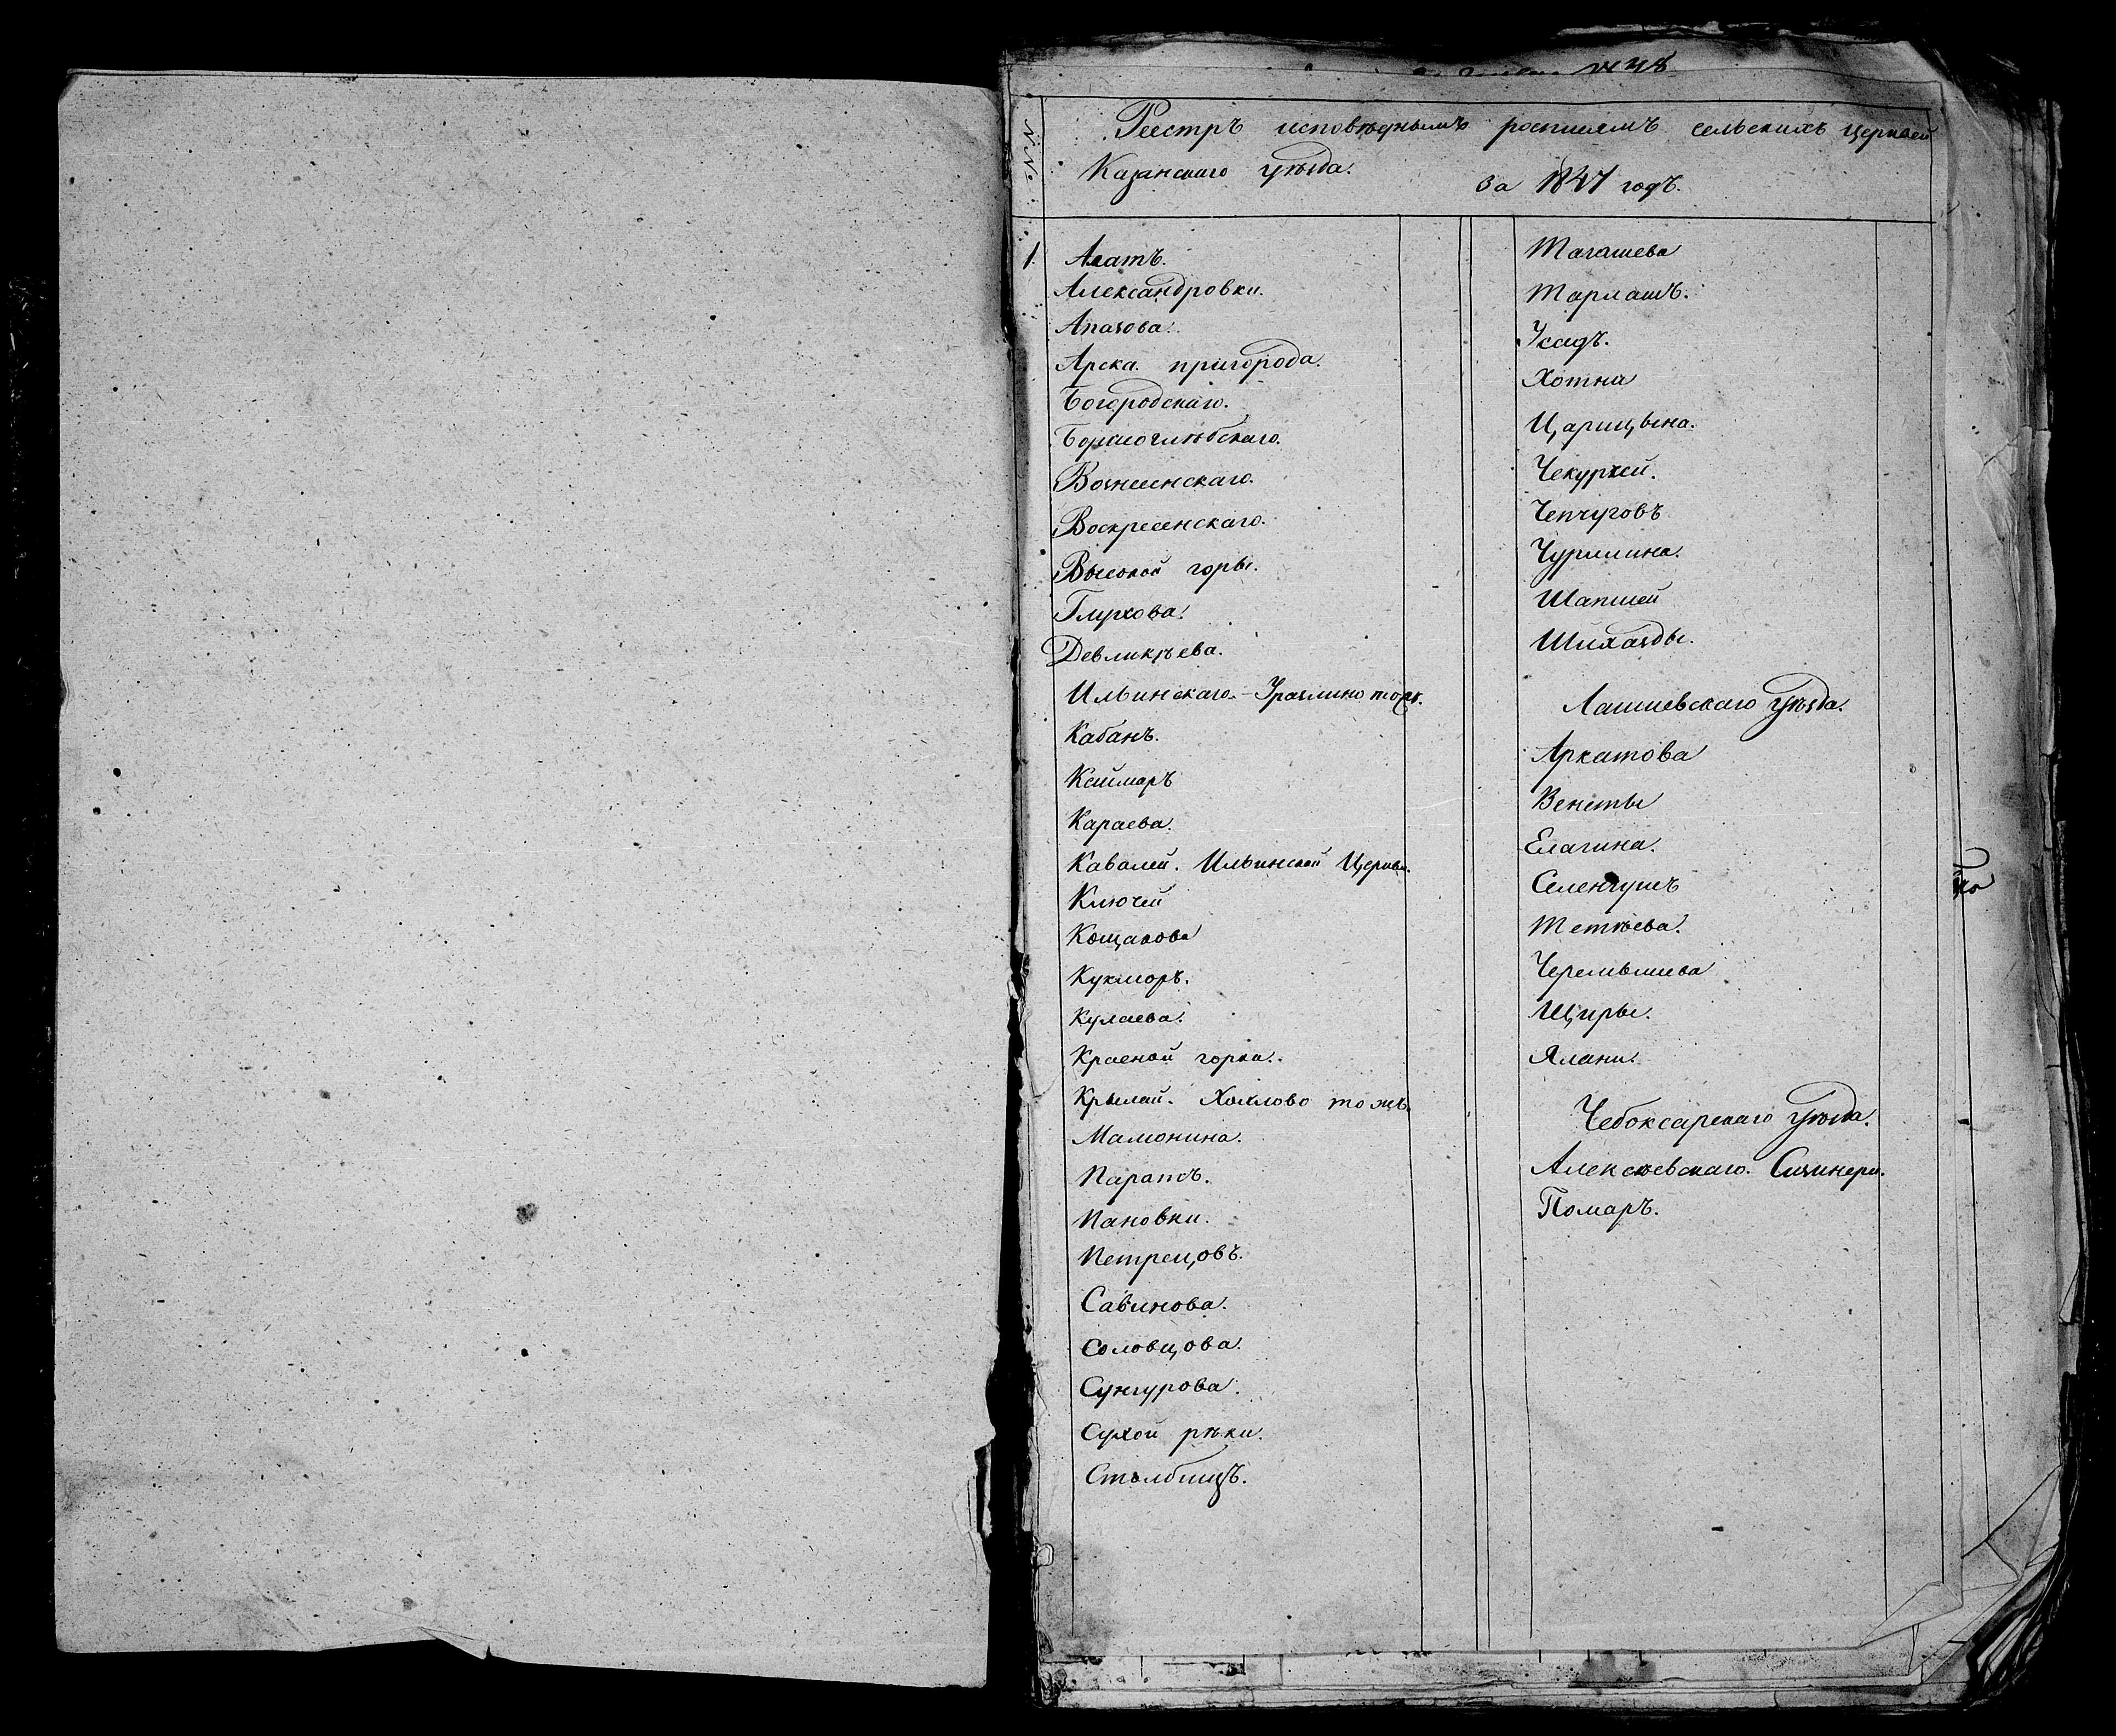 № 48
№№
Реестръ исповѣднымъ росписямъ сельскихъ церквей
Казанскаго уѣзда.
за 1847 годъ.
1
Аратъ.
Александровки.
Апазова.
Арска пригорода.
Богородскаго.
Борисоглѣбскаго.
Вознесенскаго.
Воскресенскаго.
Высокой горы.
Глухова.
Девликѣева.
Ильинскаго. Урахлино тожъ.
Кабанъ.
Каймаръ
Караева.
Ковалей. Ильинской Церкви.
Ключей
Кощакова
Кукморъ.
Кулаева.
Красной горки.
Крылай. Хохлово тожъ.
Мамонина.
Паратъ.
Пановки.
Петрецовъ.
Савинова.
Соловцова.
Сунгурова.
Сухой рѣки.
Столбищъ.
Тагашева
Тарлашъ.
Усадъ.
Хотни
Царицына.
Чекурчей.
Чепчуговъ
Чурилина.
Шапшей
Шихазды.
Лаишевскаго уѣзда.
Аркатова
Венеты
Елагина.
Селенгушъ
Теткѣева.
Черемышева
Щиры.
Ялани.
Чебоксарскаго уѣзда.
Алексѣевскаго.
Помаръ.